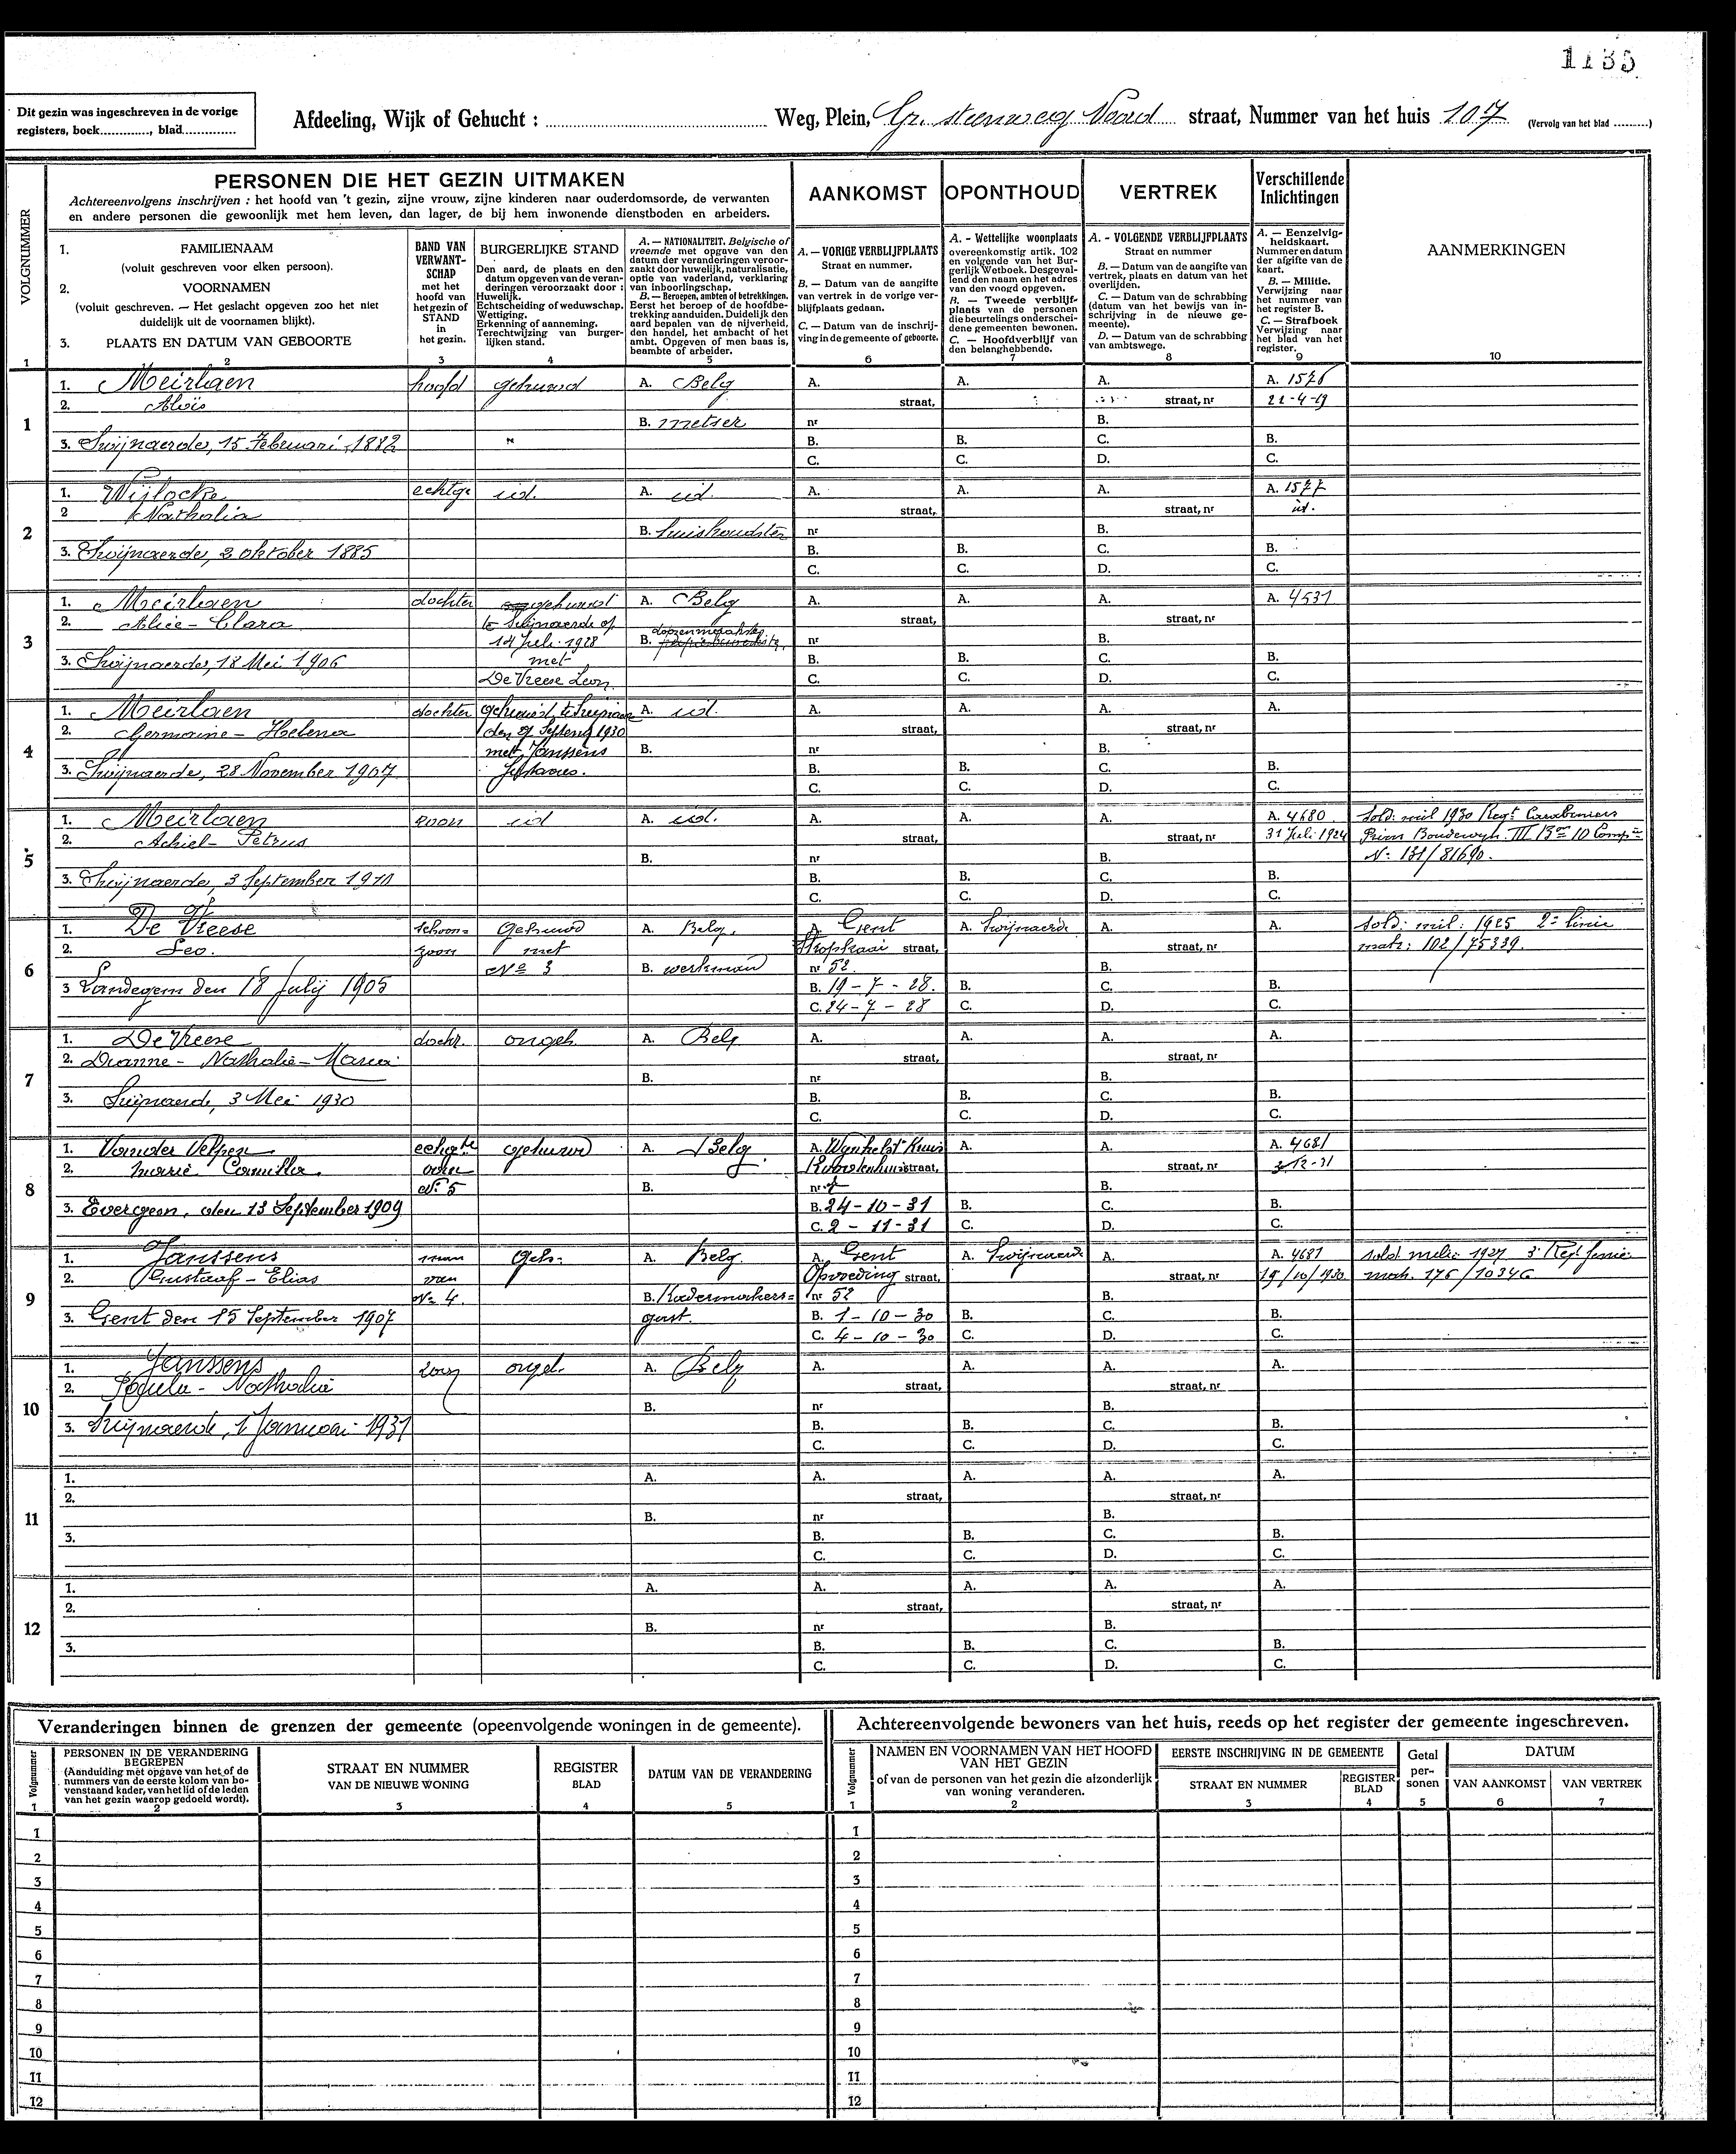 1135
Dit gezin was ingeschreven in de vorige
registers, boek............., blad..............
Afdeeling, Wijk of Gehucht : ........................ Weg, Plein, Gr. steenweg Noord straat, Nummer van het huis 107 (Vervolg van het blad .........)
VOLGNUMMER
PERSONEN DIE HET GEZIN UITMAKEN
Achtereenvolgens inschrijven : het hoofd van 't gezin, zijne vrouw, zijne kinderen naar ouderdomsorde, de verwanten
en andere personen die gewoonlijk met hem leven, dan lager, de bij hem inwonende dienstboden en arbeiders.
AANKOMST
OPONTHOUD
VERTREK
Verschillende
Inlichtingen
1. FAMILIENAAM
(voluit geschreven voor elken persoon).
2. VOORNAMEN
(voluit geschreven. — Het geslacht opgeven zoo het niet
duidelijk uit de voornamen blijkt).
3. PLAATS EN DATUM VAN GEBOORTE
BAND VAN
VERWANT-
SCHAP
met het
hoofd van
het gezin of
STAND
in
het gezin.
BURGERLIJKE STAND
Den aard, de plaats en den
datum opgeven van de veran-
deringen veroorzaakt door :
Huwelijk.
Echtscheiding of weduwschap.
Wettiging.
Erkenning of aanneming.
Terechtwijzing van burger-
lijken stand.
A. — NATIONALITEIT. Belgische of
vreemde met opgave van den
datum der veranderingen veroor-
zaakt door huwelijk, naturalisatie,
optie van vaderland, verklaring
van inboorlingschap.
B. — Beroepen, ambten of betrekkingen.
Eerst het beroep of de hoofdbe-
trekking aanduiden. Duidelijk den
aard bepalen van de nijverheid,
den handel, het ambacht of het
ambt. Opgeven of men baas is,
beambte of arbeider.
A. — VORIGE VERBLIJFPLAATS
Straat en nummer.
B. — Datum van de aangifte
van vertrek in de vorige ver-
blijfplaats gedaan.
C. — Datum van de inschrij-
ving in de gemeente of geboorte.
A. - Wettelijke woonplaats
overeenkomstig artik. 102
en volgende van het Bur-
gerlijk Wetboek. Desgeval-
lend den naam en het adres
van den voogd opgeven.
B. — Tweede verblijf-
plaats van de personen
die beurtelings onderschei-
dene gemeenten bewonen.
C. — Hoofdverblijf van
den belanghebbende.
A. - VOLGENDE VERBLIJFPLAATS
Straat en nummer
B. — Datum van de aangifte van
vertrek, plaats en datum van het
overlijden.
C. — Datum van de schrabbing
(datum van het bewijs van in-
schrijving in de nieuwe ge-
meente).
D. — Datum van de schrabbing
van ambtswege.
A. — Eenzelvig-
heidskaart.
Nummer en datum
der afgifte van de
kaart.
B. — Militie.
Verwijzing naar
het nummer van
het register B.
C. — Strafboek
Verwijzing naar
het blad van het
register.
AANMERKINGEN
1 2 3 4 5 6 7 8 9 10
1
1. Meirlaen hoofd gehuwd A. Belg A. A. A. A. 1576
2. Aloïs straat, straat, nr 22-4-19
B. metser nr B.
3. Swijnaerde, 15 Februari 1882 B. B. C. B.
C. C. D. C.
2
1. Wijlocke echtge id. A. id. A. A. A. A. 1577
2 Nathalia straat, straat, nr id.
B. huishoudster nr B.
3. Swijnaerde, 2 oktober 1885 B. B. C. B.
C. C. D. C.
3
1. Meirlaen dochter gehuwd A. Belg A. A. A. A. 4531
2. Alice - Clara te Swijnaerde op straat, straat, nr
14 Juli 1928 B. nr B.
3. Swijnaerde, 18 Mei 1906 met B. B. C. B.
De Vreese Leon C. C. D. C.
4
1. Meirlaen dochter gehuwd te A. id. A. A. A. A.
2. Germaine - Helena 1930 straat, straat, nr
met Janssens B. nr B.
3. Swijnaerde, 28 November 1907 B. B. C. B.
C. C. D. C.
5
1. Meirlaen zoon id A. id. A. A. A. A. 4680 Sold. mil 1930 Regt Carabiniers
2. Achiel - Petrus straat, straat, nr 31 Juli 1924 Prins Boudewyn III Bon 10 Compie
B. nr B. No 131/81690.
3. Swijnaerde, 3 September 1911 B. B. C. B.
C. C. D. C.
6
1. De Vreese schoon= Gehuwd A. Belg. A. Gent A. Swijnaerde A. A. Sold: mil: 1925 2e linie
2. Leo. zoon met Stropkaai straat, straat, nr matr: 102/75339.
No 3 B. werkman nr 52. B.
3 Landegem den 18 Julij 1905 B. 19-7-28. B. C. B.
C. 24-7-28 C. D. C.
7
1. De Vreese docht. ongeh. A. Belg A. A. A. A.
2. Dianne - Nathalie - Maria straat, straat, nr
B. nr B.
3. Swijnaerde, 3 Mei 1930 B. B. C. B.
C. C. D. C.
8
1. Vander Velpen echtgte gehuwd A. Belg. A. A. A. A. 4681
2. Marie Camilla van straat, straat, nr 3-12-31
No 5 B. nr B.
3. Evergem, den 13 September 1909 B. 24-10-31 B. C. B.
C. 2-11-31 C. D. C.
9
1. Janssens man Geh: A. Belg A. Gent A. Swijnaerde A. A. 4687 sold. milic 1927 3e Regt
2. Gustaaf - Elias van Opvoeding straat, straat, nr 19/10/1930 matr. 176/10346
No 4. B. nr 52 B.
3. Gent den 15 September 1907 gast. B. 1-10-30 B. C. B.
C. 4-10-30 C. D. C.
10
1. Janssens zoon ongeh. A. Belg A. A. A. A.
2. Nathalie straat, straat, nr
B. nr B.
3. Swijnaerde, 1 Januari 1931 B. B. C. B.
C. C. D. C.
11
1. A. A. A. A. A.
2. straat, straat, nr
B. nr B.
3. B. B. C. B.
C. C. D. C.
12
1. A. A. A. A. A.
2. straat, straat, nr
B. nr B.
3. B. B. C. B.
C. C. D. C.
Veranderingen binnen de grenzen der gemeente (opeenvolgende woningen in de gemeente).
Volgnummer
PERSONEN IN DE VERANDERING
BEGREPEN
(Aanduiding met opgave van het of de
nummers van de eerste kolom van bo-
venstaand kader, van het lid of de leden
van het gezin waarop gedoeld wordt).
STRAAT EN NUMMER
VAN DE NIEUWE WONING
REGISTER
BLAD
DATUM VAN DE VERANDERING
1 2 3 4 5
1
2
3
4
5
6
7
8
9
10
11
12
Achtereenvolgende bewoners van het huis, reeds op het register der gemeente ingeschreven.
Volgnummer
NAMEN EN VOORNAMEN VAN HET HOOFD
VAN HET GEZIN
of van de personen van het gezin die afzonderlijk
van woning veranderen.
EERSTE INSCHRIJVING IN DE GEMEENTE
STRAAT EN NUMMER
REGISTER
BLAD
Getal
per-
sonen
DATUM
VAN AANKOMST
VAN VERTREK
1 2 3 4 5 6 7
1
2
3
4
5
6
7
8
9
10
11
12